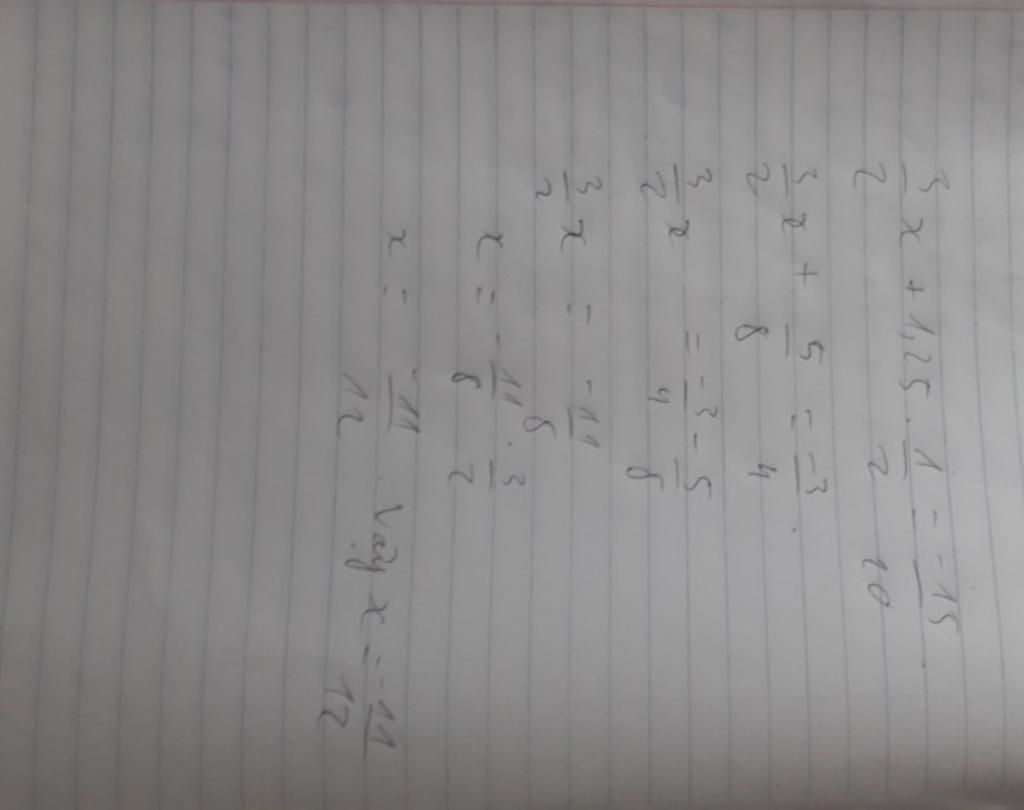 3/2 x + 1,25 . 1/2 = -15/20 .
3/2 x + 5/8 = -3/4 .
3/2 x = -3/4 - 5/8
3/2 x = -11/8
x = -11/8 . 3/2
x = -11/12 . Vậy x = -11/12